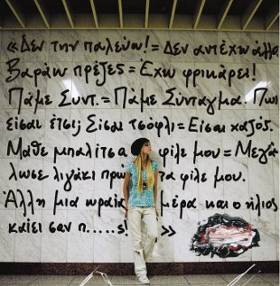 «Δεν την παλεύω! = Δεν αντέχω άλλο
Βαράω πρέζες = Έχω φρικάρει!
Πάμε Συντ. = Πάμε Σύνταγμα. Πωω
είσαι έτσι; Είσαι τσόφλι = Είσαι χαζός.
Μάθε μπαλίτσα φίλε μου = Μεγά
λωσε λιγάκι πρώτα φίλε μου.
Άλλη μια ωραία μέρα και ο ήλιος
καίει σαν π.....s! »